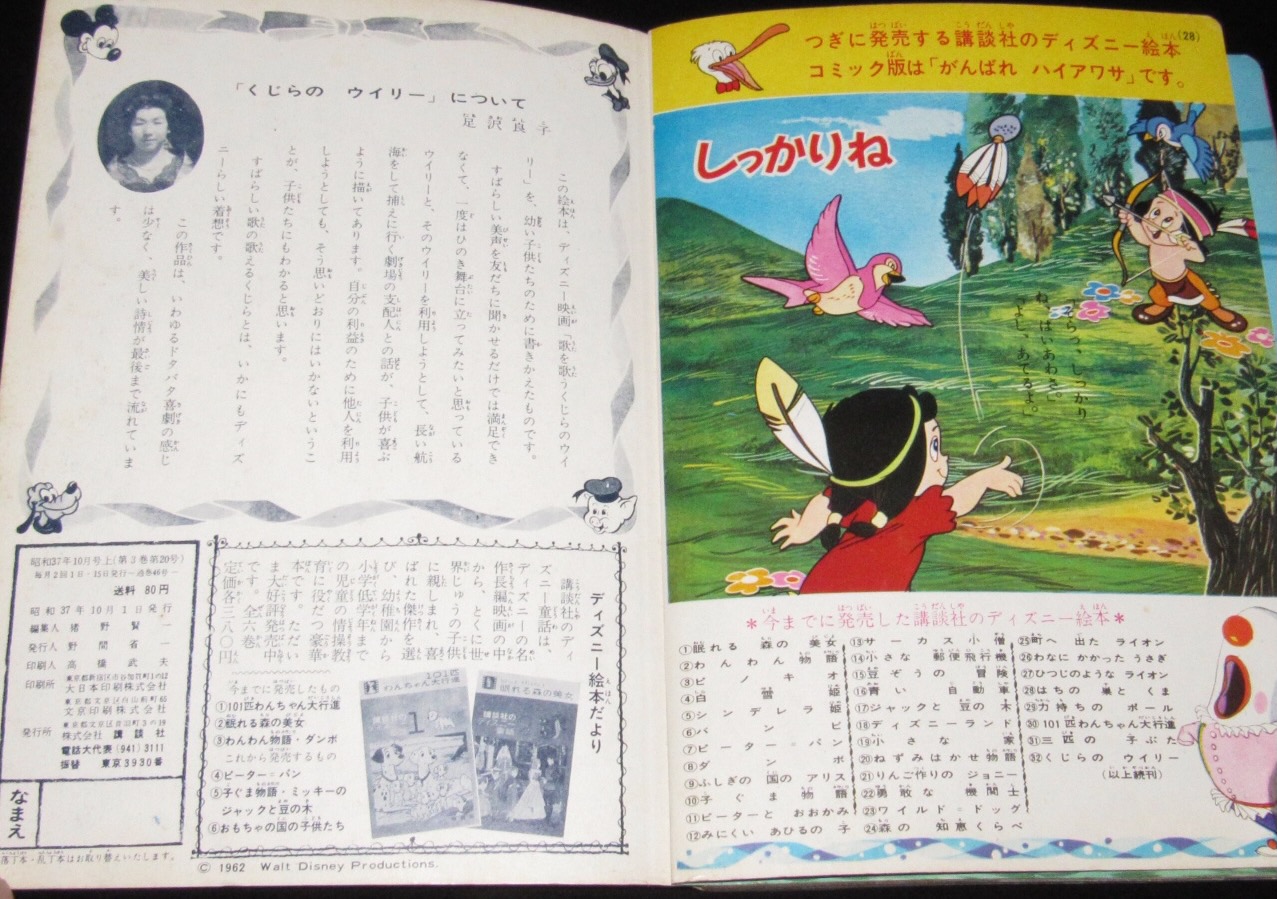 「くじらの ウイリー」について
足沢良子
この絵本は、ディズニー映画「歌を歌うくじらのウイ
リー」を、幼い子供たちのために書きかえたものです。
すばらしい美声を友だちに聞かせるだけでは満足でき
なくて、一度はひのき舞台に立ってみたいと思っている
ウイリーと、そのウイリーを利用しようとして、長い航
海をして捕えに行く劇場の支配人との話が、子供が喜ぶ
ように描いてあります。自分の利益のために他人を利用
しようとしても、そう思いどおりにはいかないというこ
とが、子供たちにもわかると思います。
すばらしい歌の歌えるくじらとは、いかにもディズ
ニーらしい着想です。
この作品は、いわゆるドタバタ喜劇の感じ
は少なく、美しい詩情が最後まで流れていま
す。
昭和37年10月号上(第3巻第20号)
毎月2回1日・15日発行―通巻46号―
送料 80円
昭和37年10月1日発行
編集人 猪野賢一
発行人 野間省一
印刷人 高橋武夫
印刷所
大日本印刷株式会社
文京印刷株式会社
発行所
株式会社 講談社
電話大代表(941)3111
振替 東京3930番
なまえ
落丁本・乱丁本はお取り替えいたします。
ディズニー絵本だより
講談社のディ
ズニー童話は、
ディズニーの名
作長編映画の中
から、とくに世
界じゅうの子供
に親しまれ、喜
ばれた傑作を選
び、幼稚園から
小学低学年まで
の児童の情操教
育に役だつ豪華
本です。ただい
ま大好評発売中
です。全六巻、
定価各三八〇円
今までに発売したもの
①101匹わんちゃん大行進
②眠れる森の美女
③わんわん物語・ダンボ
これから発売するもの
④ピーター=パン
⑤子ぐま物語・ミッキーの
ジャックと豆の木
⑥おもちゃの国の子供たち
101匹
わんちゃん大行進
眠れる森の美女
© 1962 Walt Disney Productions.
つぎに発売する講談社のディズニー絵本(28)
コミック版は「がんばれ ハイアワサ」です。
しっかりね
「そらっ、しっかり
ね、はいあわさ。」
「よし、あてるよ。」
*今までに発売した講談社のディズニー絵本*
①眠れる 森の 美女
②わんわん 物語
③ピノキオ
④白雪姫
⑤シンデレラ姫
⑥バンビ
⑦ピーター=パン
⑧ダンボ
⑨ふしぎの 国の アリス
⑩子ぐま物語
⑪ピーターと おおかみ
⑫みにくい あひるの 子
⑬サーカス小僧
⑭小さな 郵便飛行機
⑮豆ぞうの 冒険
⑯青い 自動車
⑰ジャックと 豆の 木
⑱ディズニーランド
⑲小さな 家
⑳ねずみはかせ物語
㉑りんご作りの ジョニー
㉒勇敢な 機関士
㉓ワイルド=ドッグ
㉔森の 知恵くらべ
㉕町へ 出た ライオン
㉖わなに かかった うさぎ
㉗ひつじのような ライオン
㉘はちの 巣と くま
㉙力持ちの ポール
㉚101匹わんちゃん大行進
㉛三匹の 子ぶた
㉜くじらの ウイリー
(以上続刊)